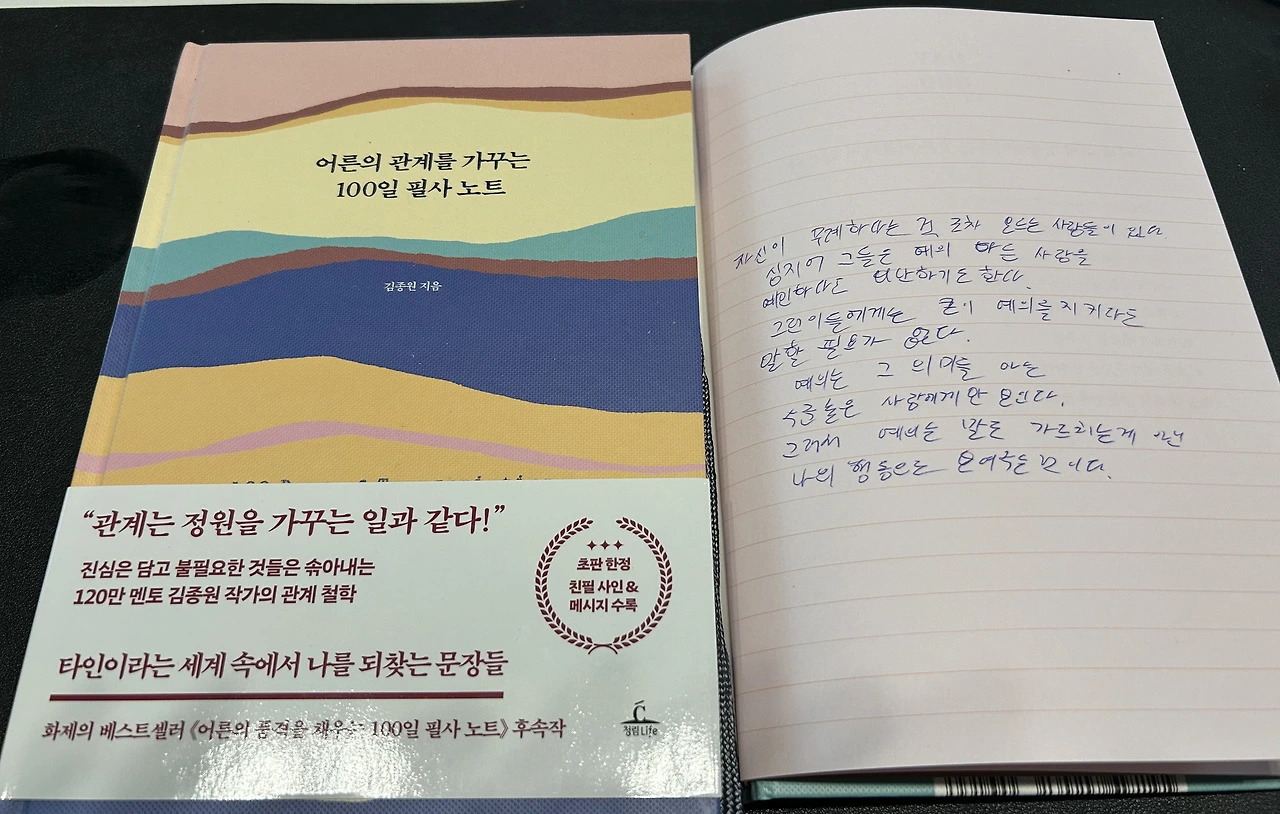 어른의 관계를 가꾸는
100일 필사 노트
김종원 지음
“관계는 정원을 가꾸는 일과 같다!”
진심은 담고 불필요한 것들은 솎아내는
120만 멘토 김종원 작가의 관계 철학
초판 한정
친필 사인 &
메시지 수록
타인이라는 세계 속에서 나를 되찾는 문장들
화제의 베스트셀러 《어른의 품격을 채우는 100일 필사 노트》 후속작
청림Life
자신이 무례하다는 것 조차 모르는 사람들이 있다
심지어 그들은 예의 아는 사람을
예민하다고 비난하기도 한다.
그런 이들에게는 굳이 예의를 지키라고
말할 필요가 없다.
예의는 그 의미를 아는
수준 높은 사람에게만 보인다.
그래서 예의는 말로 가르치는게 아닌
나의 행동으로 보여주는 것이다.